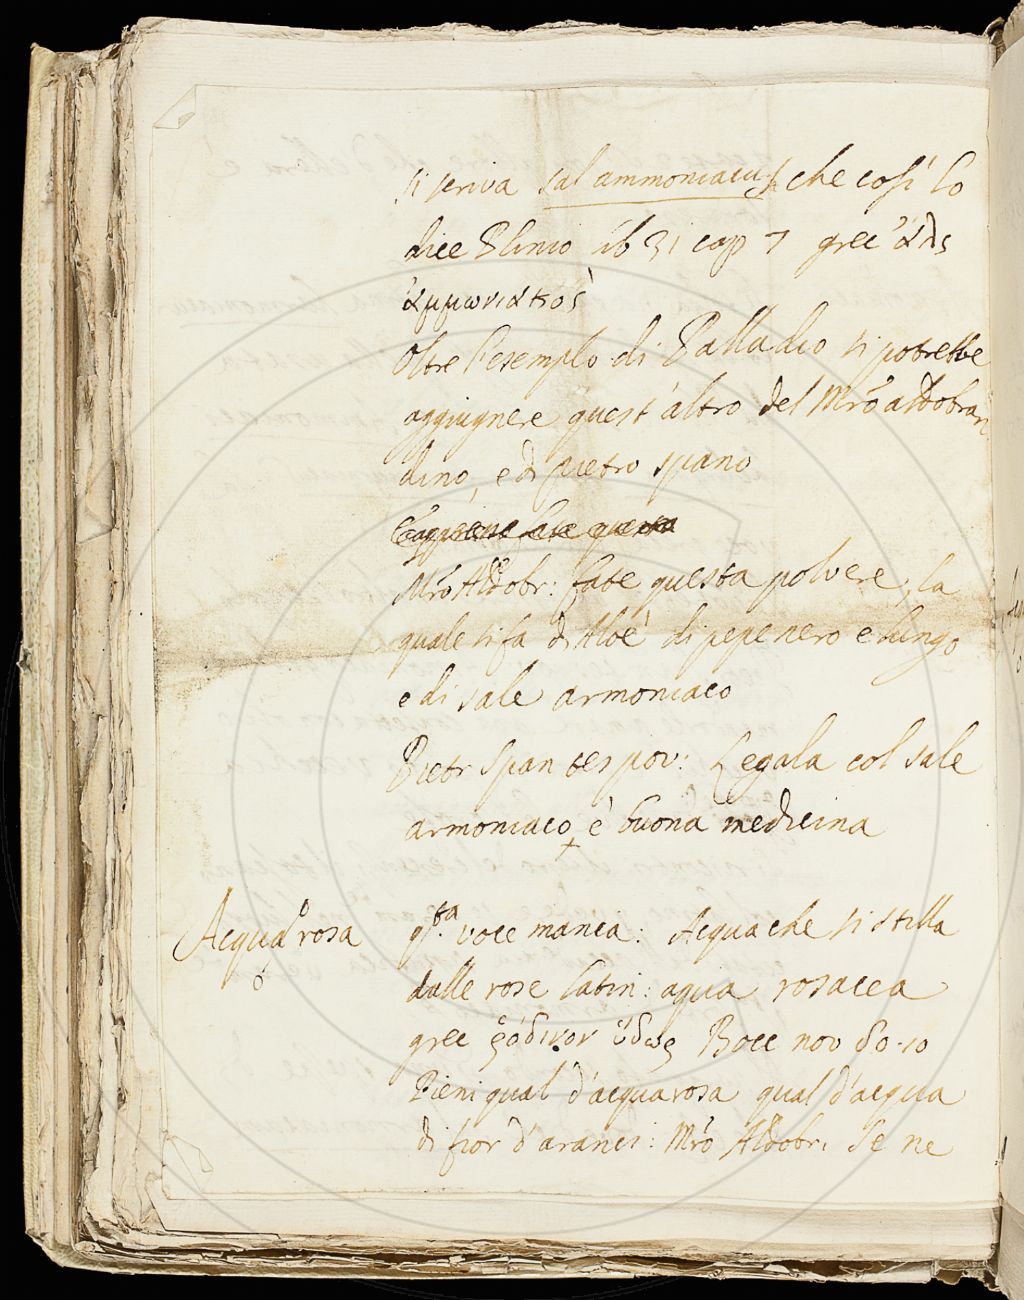 si scriva sal ammoniacus, che così lo
dice Plinio lib 31 cap 7 grec ἅλς
ἀμμωνιακὸς
Oltre l'esemplo di Palladio si potrebbe
aggiugnere quest'altro del Mro aldobran
dino, e di pietro spano
Mro Aldobr: fate questa polvere, la
quale si fa di Aloè di pepe nero e lungo
e di sale armoniaco
Pietr Span tes pov: Legala col sale
armoniaco, è buona medicina
+
Acqua rosa
qsta voce manca: Acqua che si stilla
dalle rose latin: aqua rosacea
grec ῥόδινον ὕδωρ Bocc nov 80.10
Pieni qual d'acqua rosa qual d'acqua
di fior d'aranci: Mro Aldobr. Se ne